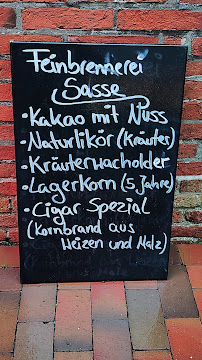 Feinbrennerei
Sasse
• Kakao mit Nuss
• Naturlikör (Kräuter)
• Kräuterwacholder
• Lagerkorn (5 Jahre)
• Cigar Spezial
(Kornbrand aus
Weizen und Malz)